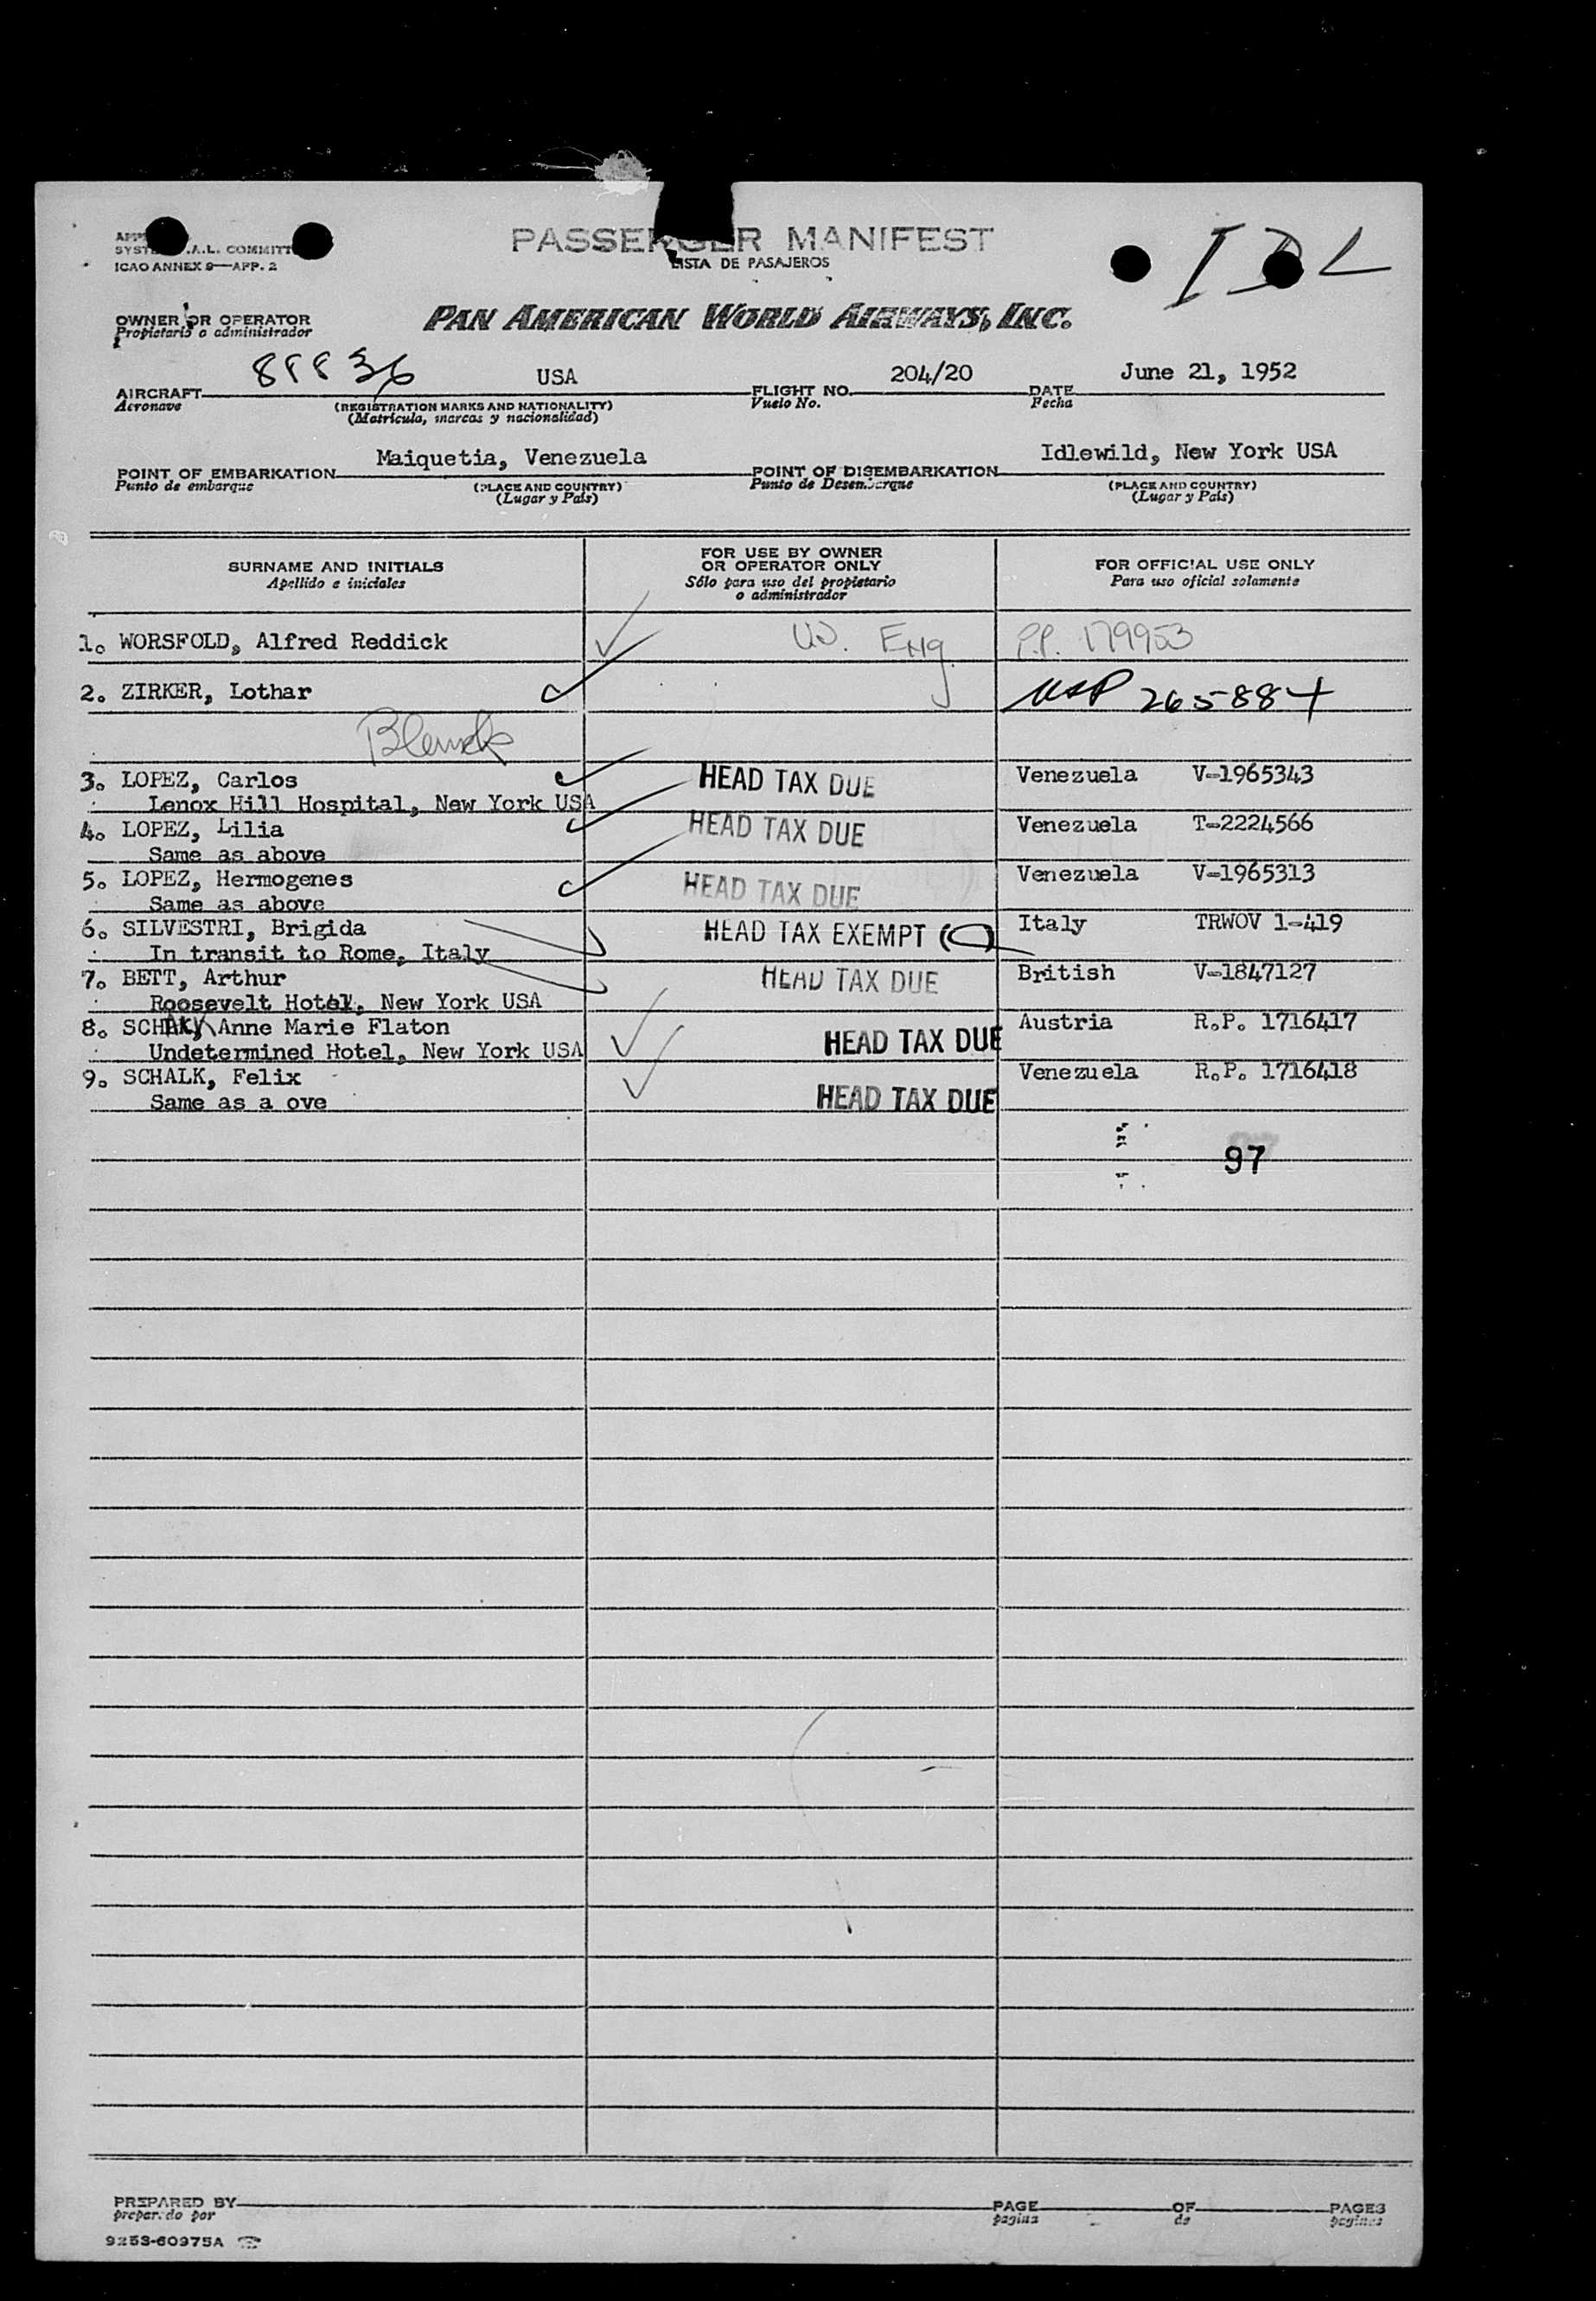 PASSENGER MANIFEST
LISTA DE PASAJEROS
A.L. COMMITT
ICAO ANNEX 9—APP. 2
OWNER OR OPERATOR
Propietario o administrador
PAN AMERICAN WORLD AIRWAYS, INC.
AIRCRAFT 88836 USA FLIGHT NO. 204/20 DATE June 21, 1952
Aeronave (REGISTRATION MARKS AND NATIONALITY) Vuelo No. Fecha
(Matricula, marcas y nacionalidad)
POINT OF EMBARKATION Maiquetia, Venezuela POINT OF DISEMBARKATION Idlewild, New York USA
Punto de embarque (PLACE AND COUNTRY) Punto de Desembarque (PLACE AND COUNTRY)
(Lugar y País) (Lugar y País)
SURNAME AND INITIALS FOR USE BY OWNER OR OPERATOR ONLY FOR OFFICIAL USE ONLY
Apellido e iniciales Sólo para uso del propietario o administrador Para uso oficial solamente
1. WORSFOLD, Alfred Reddick US. Eng. P.P. 179953
2. ZIRKER, Lothar USP 265884
3. LOPEZ, Carlos HEAD TAX DUE Venezuela V-1965343
Lenox Hill Hospital, New York USA
4. LOPEZ, Lilia HEAD TAX DUE Venezuela T-2224566
Same as above
5. LOPEZ, Hermogenes HEAD TAX DUE Venezuela V-1965313
Same as above
6. SILVESTRI, Brigida HEAD TAX EXEMPT Italy TRWOV 1-419
In transit to Rome, Italy
7. BETT, Arthur HEAD TAX DUE British V-1847127
Roosevelt Hotel, New York USA
8. Anne Marie Flaton HEAD TAX DUE Austria R.P. 1716417
Undetermined Hotel, New York USA
9. SCHALK, Felix HEAD TAX DUE Venezuela R.P. 1716418
Same as a ove
97
PREPARED BY PAGE OF PAGES
preparado por pagina de paginas
9253-60975A